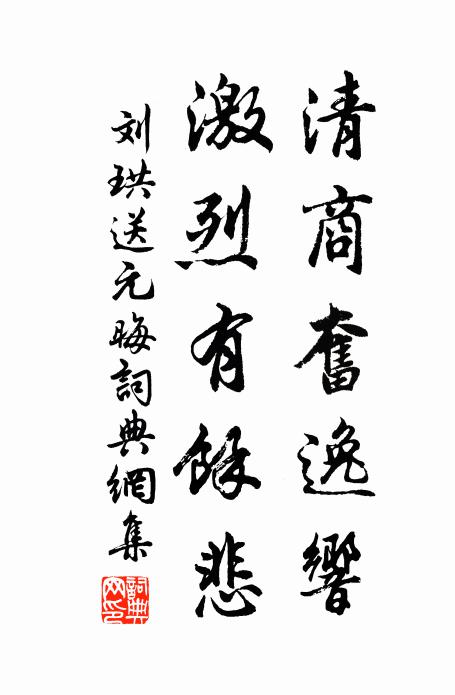 清商奮逸響
激烈有餘悲
刘珙送元晦詞典網集
詞典網印